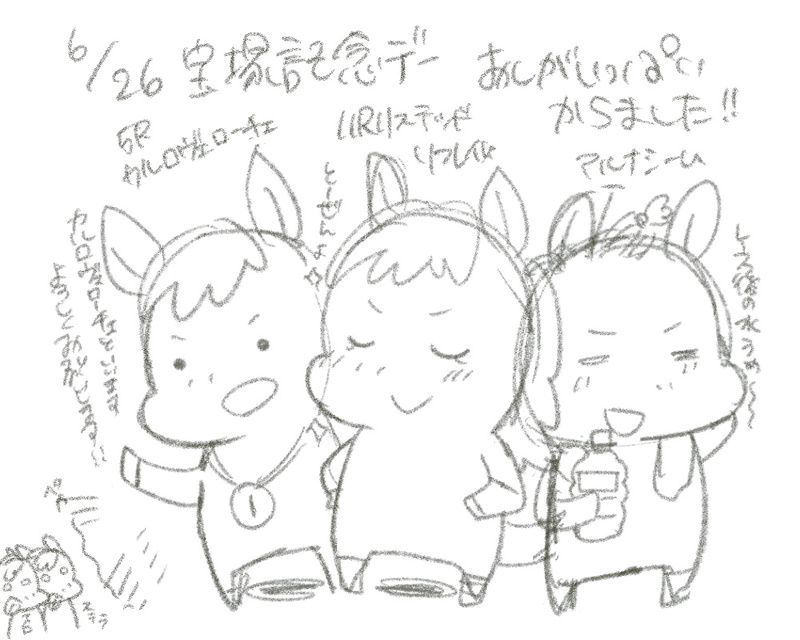 6/26 宝塚記念デー
あしがいっぱい
からました!!
5R
カルロヴェローチェ
11Rリステッド
リフレイム
マルカシーム
とーぜんよ
カルロヴェローチェといいます
よろしくおねがいします
レース後の水うめ〜
ステラ